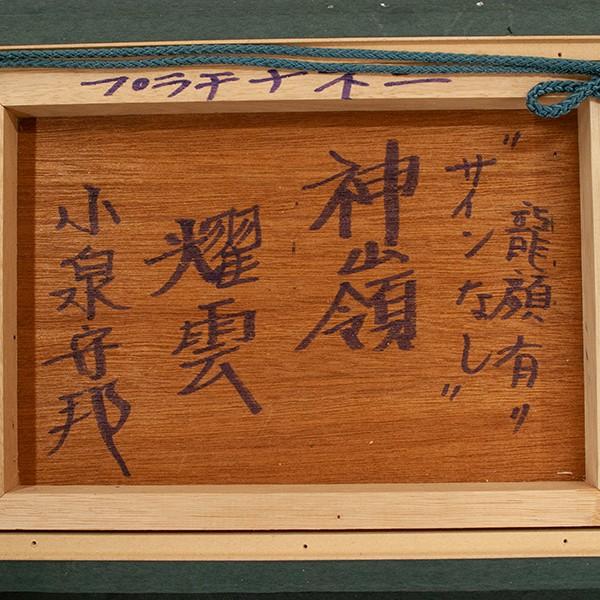 プラチナ
"龍顔有"
"サインなし"
神嶺
耀雲
小泉守邦